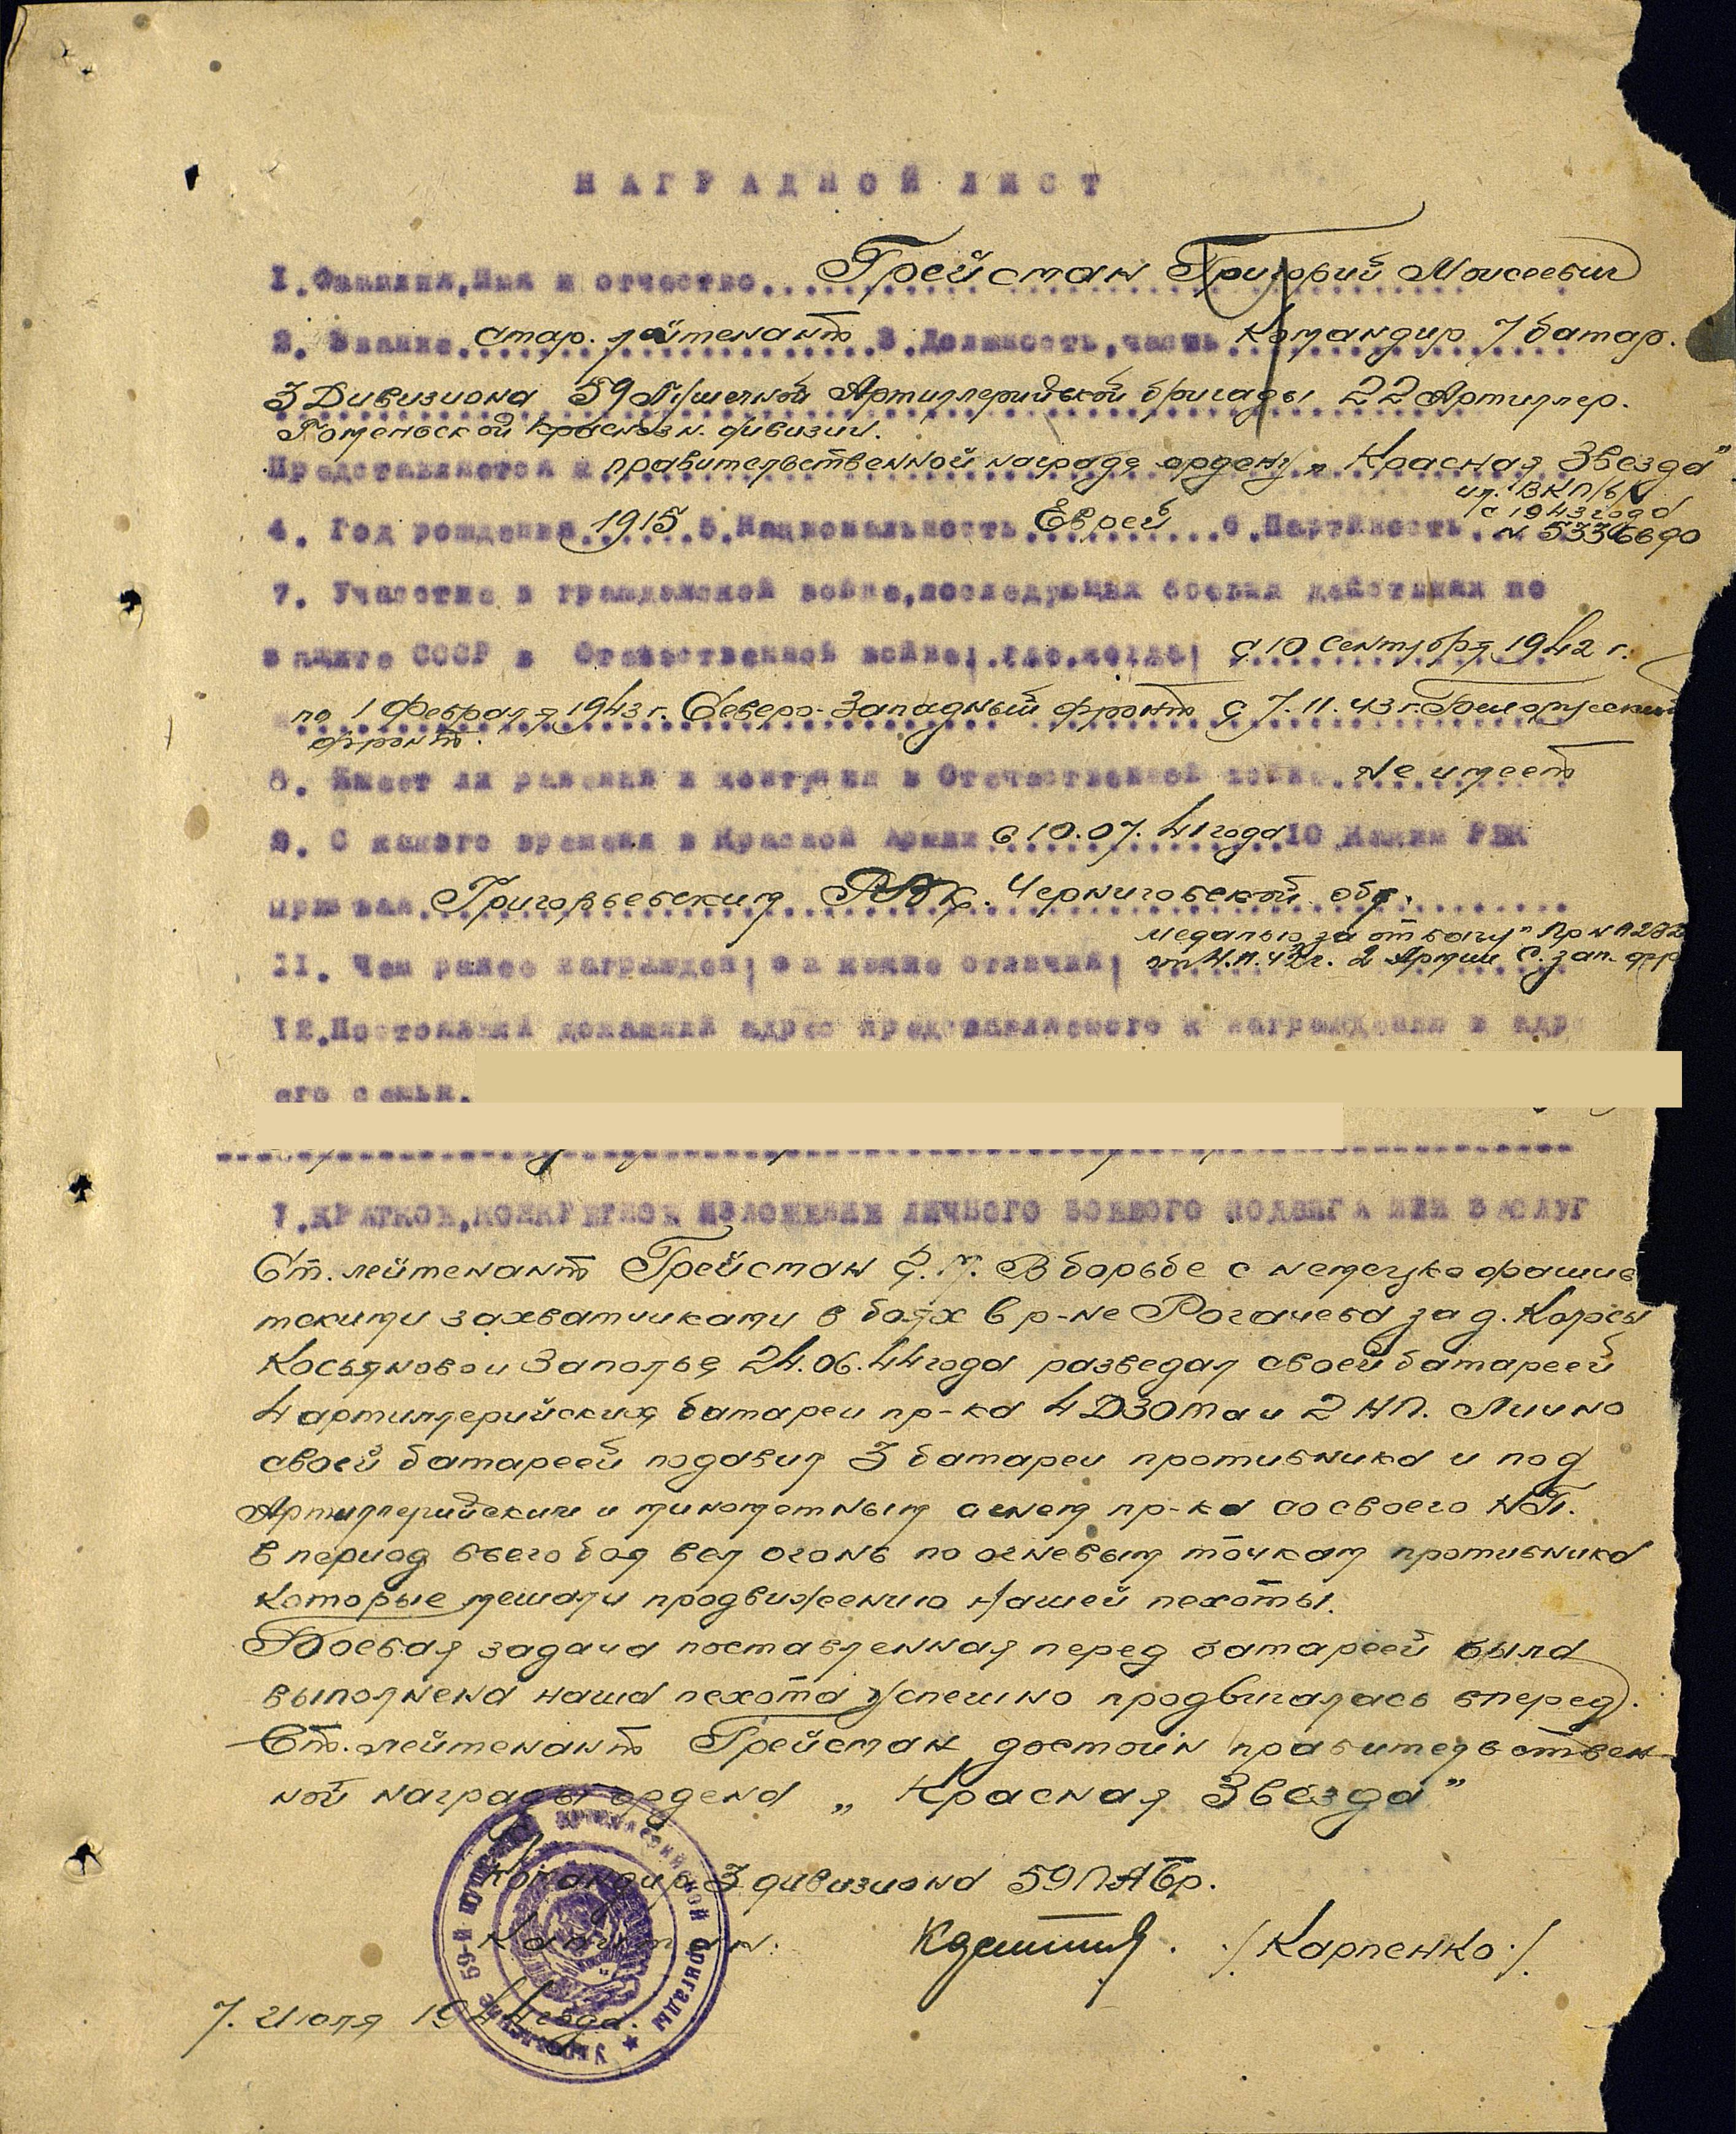 НАГРАДНОЙ ЛИСТ
1.Фамилия,Имя и отчество Грейсман Григорий Моисеевич
2. Звание стар. лейтенант 3.Должность,часть Командир 7 батар.
3 Дивизиона 59 Пушечной Артиллерийской бригады 22 Артиллер.
Гомельской Краснозн. дивизии.
Представляется к правительственной награде ордену „Красная Звезда"
чл. ВКП/б/
с 1943 года
4. Год рождения 1915 5.Национальность Еврей 6.Партийность N 5336690
7. Участие в гражданской войне,последующих боевых действиях по
защите СССР в Отечественной войне/где,когда/ с 10 Сентября 1942 г.
по 1 Февраля 1943 г. Северо-Западный фронт с 7.11.43 г. Белорусский
фронт.
8. Имеет ли ранения и контузии в Отечественной войне Не имеет
9. С какого времени в Красной Армии с 10.07.41 года 10 Каким РВК
призван Григорьевским РВК. Черниговской обл.
медалью за отвагу"
11. Чем ранее награжден/за какие отличия/ 2 Армии С. зап. фр
12.Постоянный домашний адрес представляемого к награждению и адр
его семьи.
1.КРАТКОЕ,КОНКРЕТНОЕ ИЗЛОЖЕНИЕ ЛИЧНОГО БОЕВОГО ПОДВИГА ИЛИ ЗАСЛУГ
Ст. лейтенант Грейсман Г. М. В борьбе с немецко фашис
тскими захватчиками в боях в р-не Рогачева за д.
Заполье 24.06.44 года разведал своей батареей
4 артиллерийских батареи пр-ка 4 ДЗОТа и 2 НП. Лично
своей батареей подавил 3 батареи противника и под
Артиллерийским и минометным огнем пр-ка со своего НП.
в период всего боя вел огонь по огневым точкам противника
которые мешали продвижению нашей пехоты.
Боевая задача поставленная перед батареей была
выполнена наша пехота успешно продвигалась вперед.
Ст. лейтенант Грейсман достоин правительствен-
ной награды ордена „Красная Звезда"
Командир 3 дивизиона 59 ПАбр.
Капитан. /Карпенко./
7. Июля 1944 года.
Управление 59-й Пушечной Артиллерийской Бригады